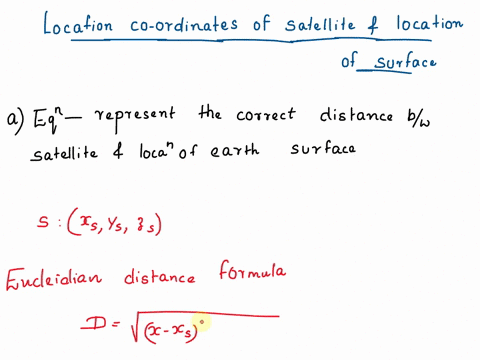 Location co-ordinates of satellite & location
of surface
a) Eqⁿ — represent the correct distance b/w
satellite & locaⁿ of earth surface
S : (xs, ys, zs)
Eucleidian distance formula
D = √(x - xs)